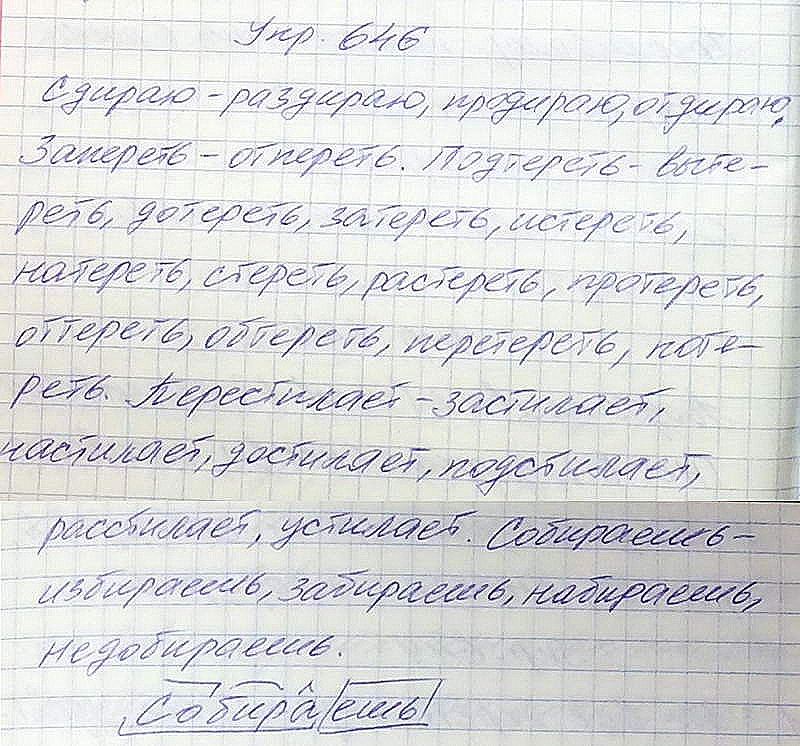 Упр. 646
Сдираю – раздираю, продираю, отдираю.
Запереть – отпереть. Подтереть – выте-
реть, дотереть, затереть, истереть,
натереть, стереть, растереть, протереть,
оттереть, обтереть, перетереть, поте-
реть. Перестилает – застилает,
настилает, достилает, подстилает,
расстилает, устилает. Собираешь –
избираешь, забираешь, набираешь,
недобираешь.
Собираешь